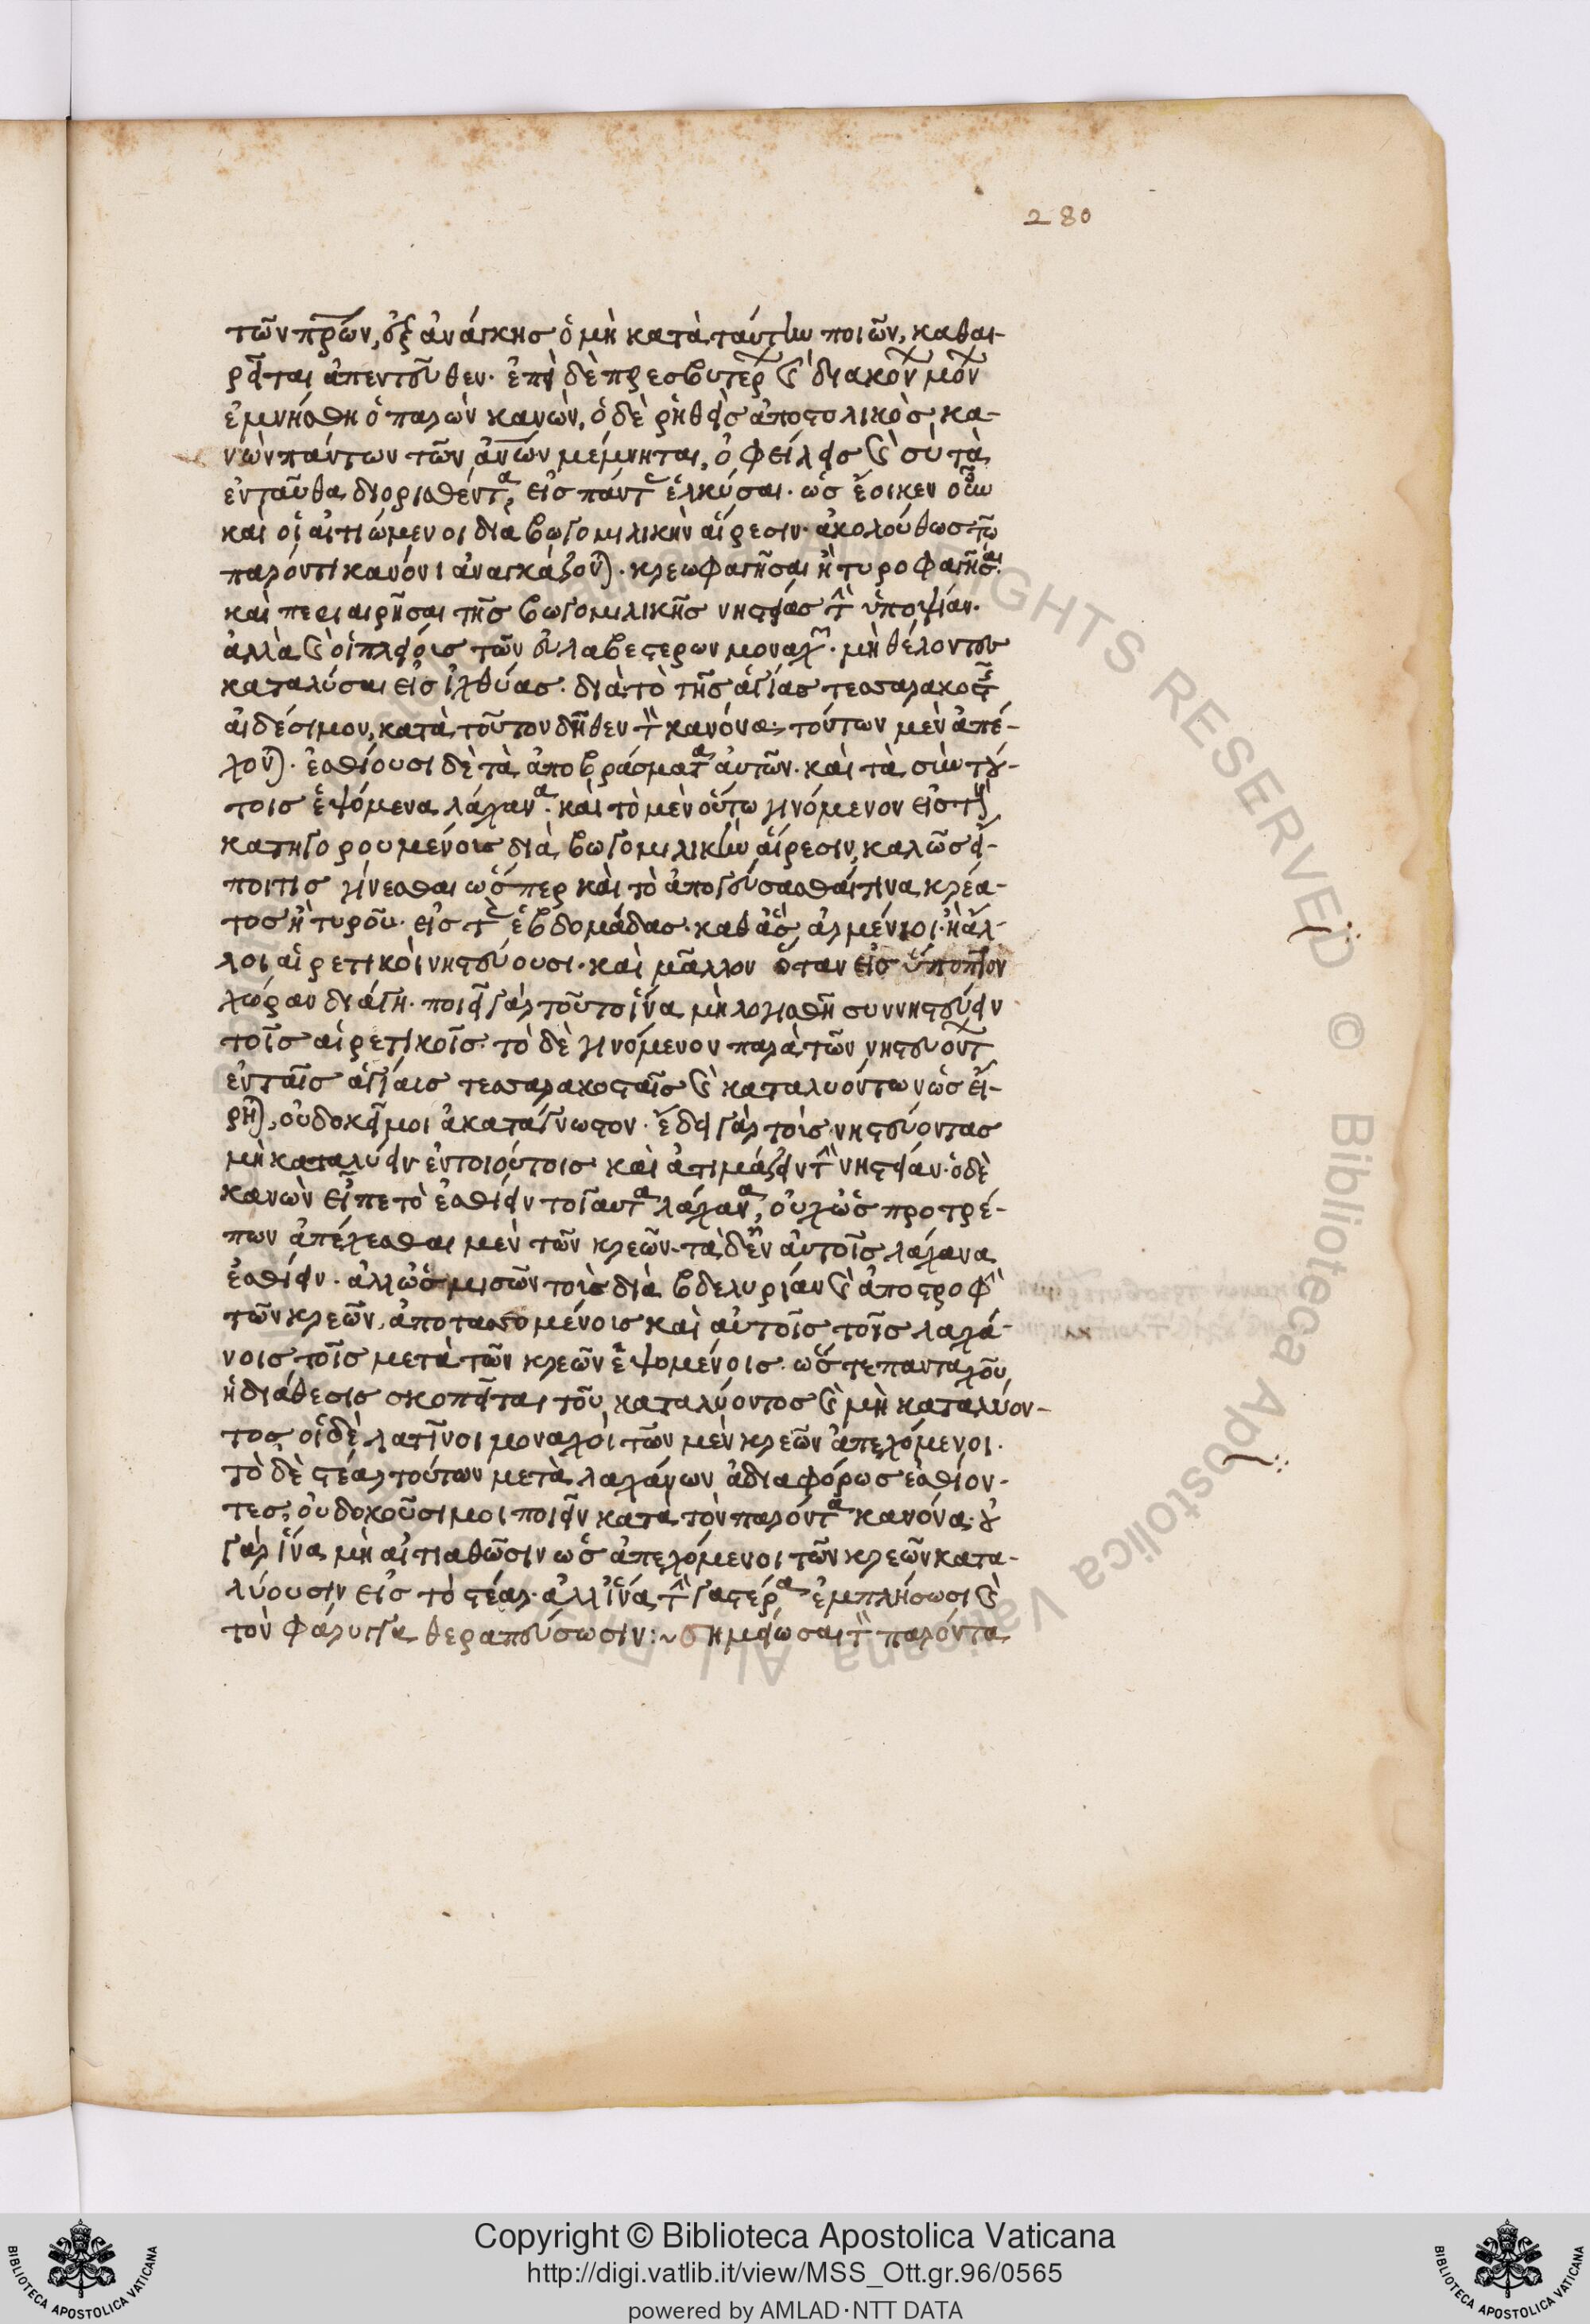 280
τῶν πρῶν, ἐξ ἀνάγκης ὁ μὴ κατὰ ταύτην ποιῶν, καθαι-
ρεῖται ἀπεντεῦθεν. ἐπεὶ δὲ πρεσβυτέρων καὶ διακόνων μόνων
ἐμνήσθη ὁ παρὼν κανών, ὁ δὲ ῥηθεὶς ἀποστολικὸς κα-
νὼν πάντων τῶν ἀνῶν μέμνηται, ὀφείλεις καὶ σὺ τὰ
ἐνταῦθα διορισθέντα, εἰς πάντας ἑλκύσαι. ὡς ἔοικεν οὖν
καὶ οἱ αἰτιώμενοι διὰ βωγομιλικὴν αἵρεσιν. ἀκολούθως τῶ
παρόντι κανόνι ἀναγκάζονται. κρεωφαγῆσαι ἢ τυροφαγῆσαι.
καὶ περιαιρῆσαι τῆς βωγομιλικῆς νηστείας τὴν ὑποψίαν.
ἀλλὰ καὶ οἱ πλείους τῶν εὐλαβεστέρων μοναχῶν. μὴ θέλοντες
καταλύσαι εἰς ἰχθύας. διὰ τὸ τῆς ἁγίας τεσσαρακοστῆς
αἰδέσιμον, κατὰ τοῦτον δῆθεν τὸν κανόνα, τούτων μὲν ἀπέ-
χονται. ἐσθίουσι δὲ τὰ ἀποβράσματα αὐτῶν. καὶ τὰ σὺν τού-
τοις ἑψόμενα λάχανα. καὶ τὸ μὲν οὕτω γινόμενον εἰς τοὺς
κατηγορουμένους διὰ βωγομιλικὴν αἵρεσιν, καλῶς εἴ-
ποι τις γίνεσθαι ὥσπερ καὶ τὸ ἀπογεύσασθαί τινα κρέα-
τος ἢ τυροῦ. εἰς τὰς ἑβδομάδας. καθ' ἃς ἀρμένιοι. ἢ ἄλ-
λοι αἱρετικοὶ νηστεύουσι. καὶ μᾶλλον ὅταν εἰς ὕποπτον
χώραν διάγη. ποιεῖ γὰρ τοῦτο ἵνα μὴ λογισθῆ συννηστεύειν
τοῖς αἱρετικοῖς. τὸ δὲ γινόμενον παρὰ τῶν νηστευόντων
ἐν ταῖς ἁγίαις τεσσαρακοσταῖς καὶ καταλυόντων ὡς εἴ-
ρηται, οὐ δοκεῖ μοι ἀκατάγνωστον. ἔδει γὰρ τοὺς νηστεύοντας
μὴ καταλύειν ἐν τοιούτοις καὶ ἀτιμάζειν τὴν νηστείαν. ὁ δὲ
κανὼν εἶπε τὸ ἐσθίειν τοιαῦτα λάχανα, οὐχ ὡς προτρέ-
πων ἀπέχεσθαι μὲν τῶν κρεῶν. τὰ δὲ ἐν αὐτοῖς λάχανα
ἐσθίειν. ἀλλ' ὡς μισῶν τοὺς διὰ βδελυρίαν καὶ ἀποστροφὴν
τῶν κρεῶν, ἀποτασσομένους καὶ αὐτοῖς τοῖς λαχά-
νοις τοῖς μετὰ τῶν κρεῶν ἑψομένοις. ὥστε πανταχοῦ
ἡ διάθεσις σκοπεῖται τοῦ καταλύοντος καὶ μὴ καταλύον-
τος. οἱ δὲ λατῖνοι μοναχοὶ τῶν μὲν κρεῶν ἀπεχόμενοι.
τὸ δὲ στέαρ τούτων μετὰ λαχάνων ἀδιαφόρως ἐσθίον-
τες, οὐ δοκοῦσι μοι ποιεῖν κατὰ τὸν παρόντα κανόνα. οὐ
γὰρ ἵνα μὴ αἰτιαθῶσιν ὡς ἀπεχόμενοι τῶν κρεῶν κατα-
λύουσιν εἰς τὸ στέαρ. ἀλλ' ἵνα τὴν γαστέρα ἐμπλήσωσι καὶ
τὸν φάρυγγα θεραπεύσωσιν:~ σημείωσαι τὸν παρόντα
Copyright © Biblioteca Apostolica Vaticana
http://digi.vatlib.it/view/MSS_Ott.gr.96/0565
powered by AMLAD·NTT DATA
BIBLIOTECA APOSTOLICA VATICANA
BIBLIOTECA APOSTOLICA VATICANA